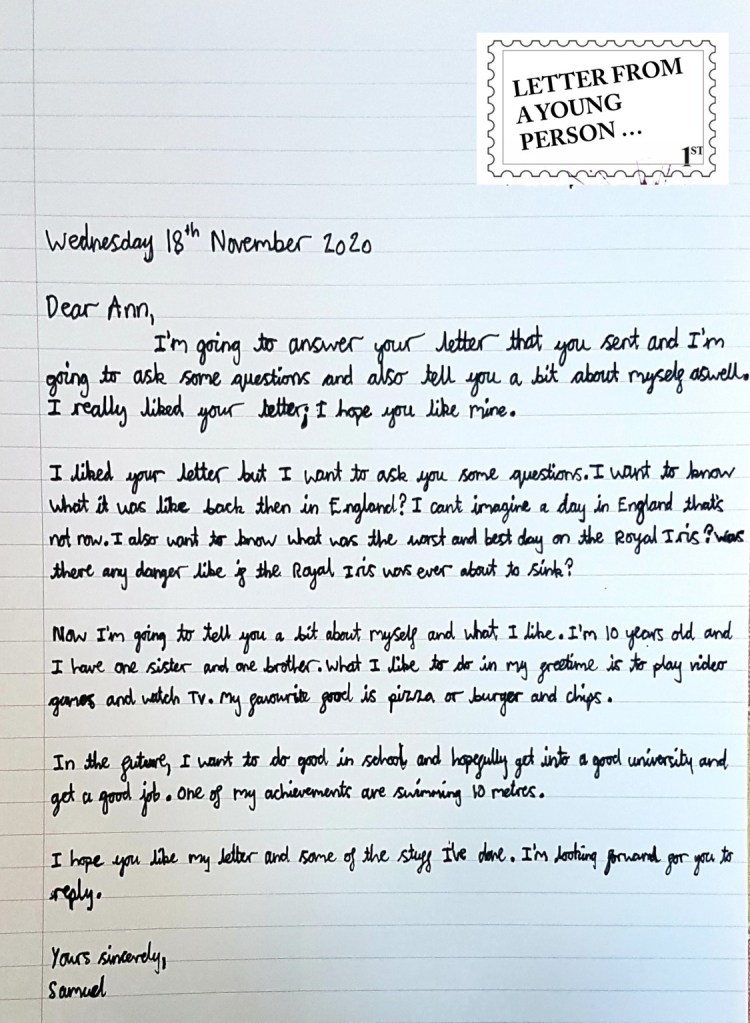 LETTER FROM
A YOUNG
PERSON ...
1ST
Wednesday 18th November 2020
Dear Ann,
I'm going to answer your letter that you sent and I'm
going to ask some questions and also tell you a bit about myself aswell.
I really liked your letter; I hope you like mine.
I liked your letter but I want to ask you some questions. I want to know
what it was like back then in England? I cant imagine a day in England that's
not now. I also want to know what was the worst and best day on the Royal Iris? was
there any danger like if the Royal Iris was ever about to sink?
Now I'm going to tell you a bit about myself and what I like. I'm 10 years old and
I have one sister and one brother. What I like to do in my freetime is to play video
games and watch TV. My favourite food is pizza or burger and chips.
In the future, I want to do good in school, and hopefully get into a good university and
get a good job. One of my achievements are swimming 10 metres.
I hope you like my letter and some of the stuff I've done. I'm looking forward for you to
reply.
Yours sincerely,
Samuel